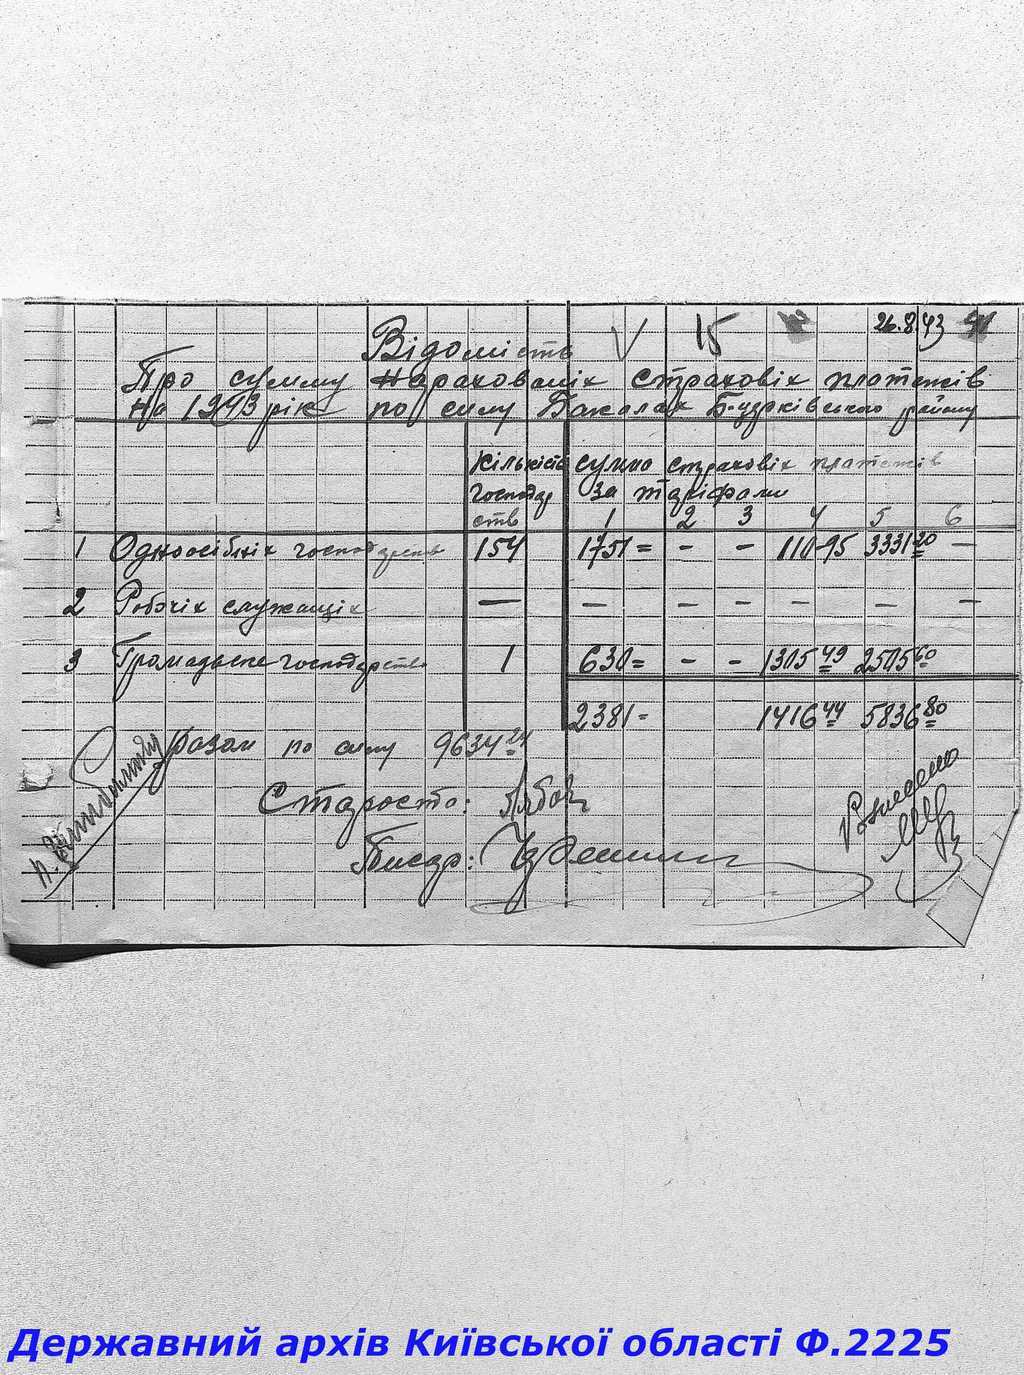 15 26.8.43
Відомість
Про сумму нарахованіх страховіх платежів
на 1943 рік по селу Бакалах Б-церківського району
Кількість сумма страховіх платежів
господар за таріфами
ств 1 2 3 4 5 6
1 Одноосібніх господарств 154 1751= - - 110-95 3331 20 -
2 Робочіх служащіх - - - - - - -
3 Громадьске господарство 1 630= - - 1305 49 2505 60
2381- 1416 44 5836 80
разом по селу 9634-24
Староста:
Писар:
Державний архів Київської області Ф.2225